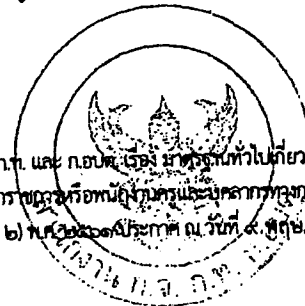 ก.ท. และ ก.อบต. เรื่อง มาตรฐานทั่วไปเกี่ยว
ราชการหรือพนักงานครูและบุคลากรทางก
๒) พ.ศ. ๒๕๖๑ ประกาศ ณ วันที่ ๙ พฤษ
งาน ก.จ. ก.ท.